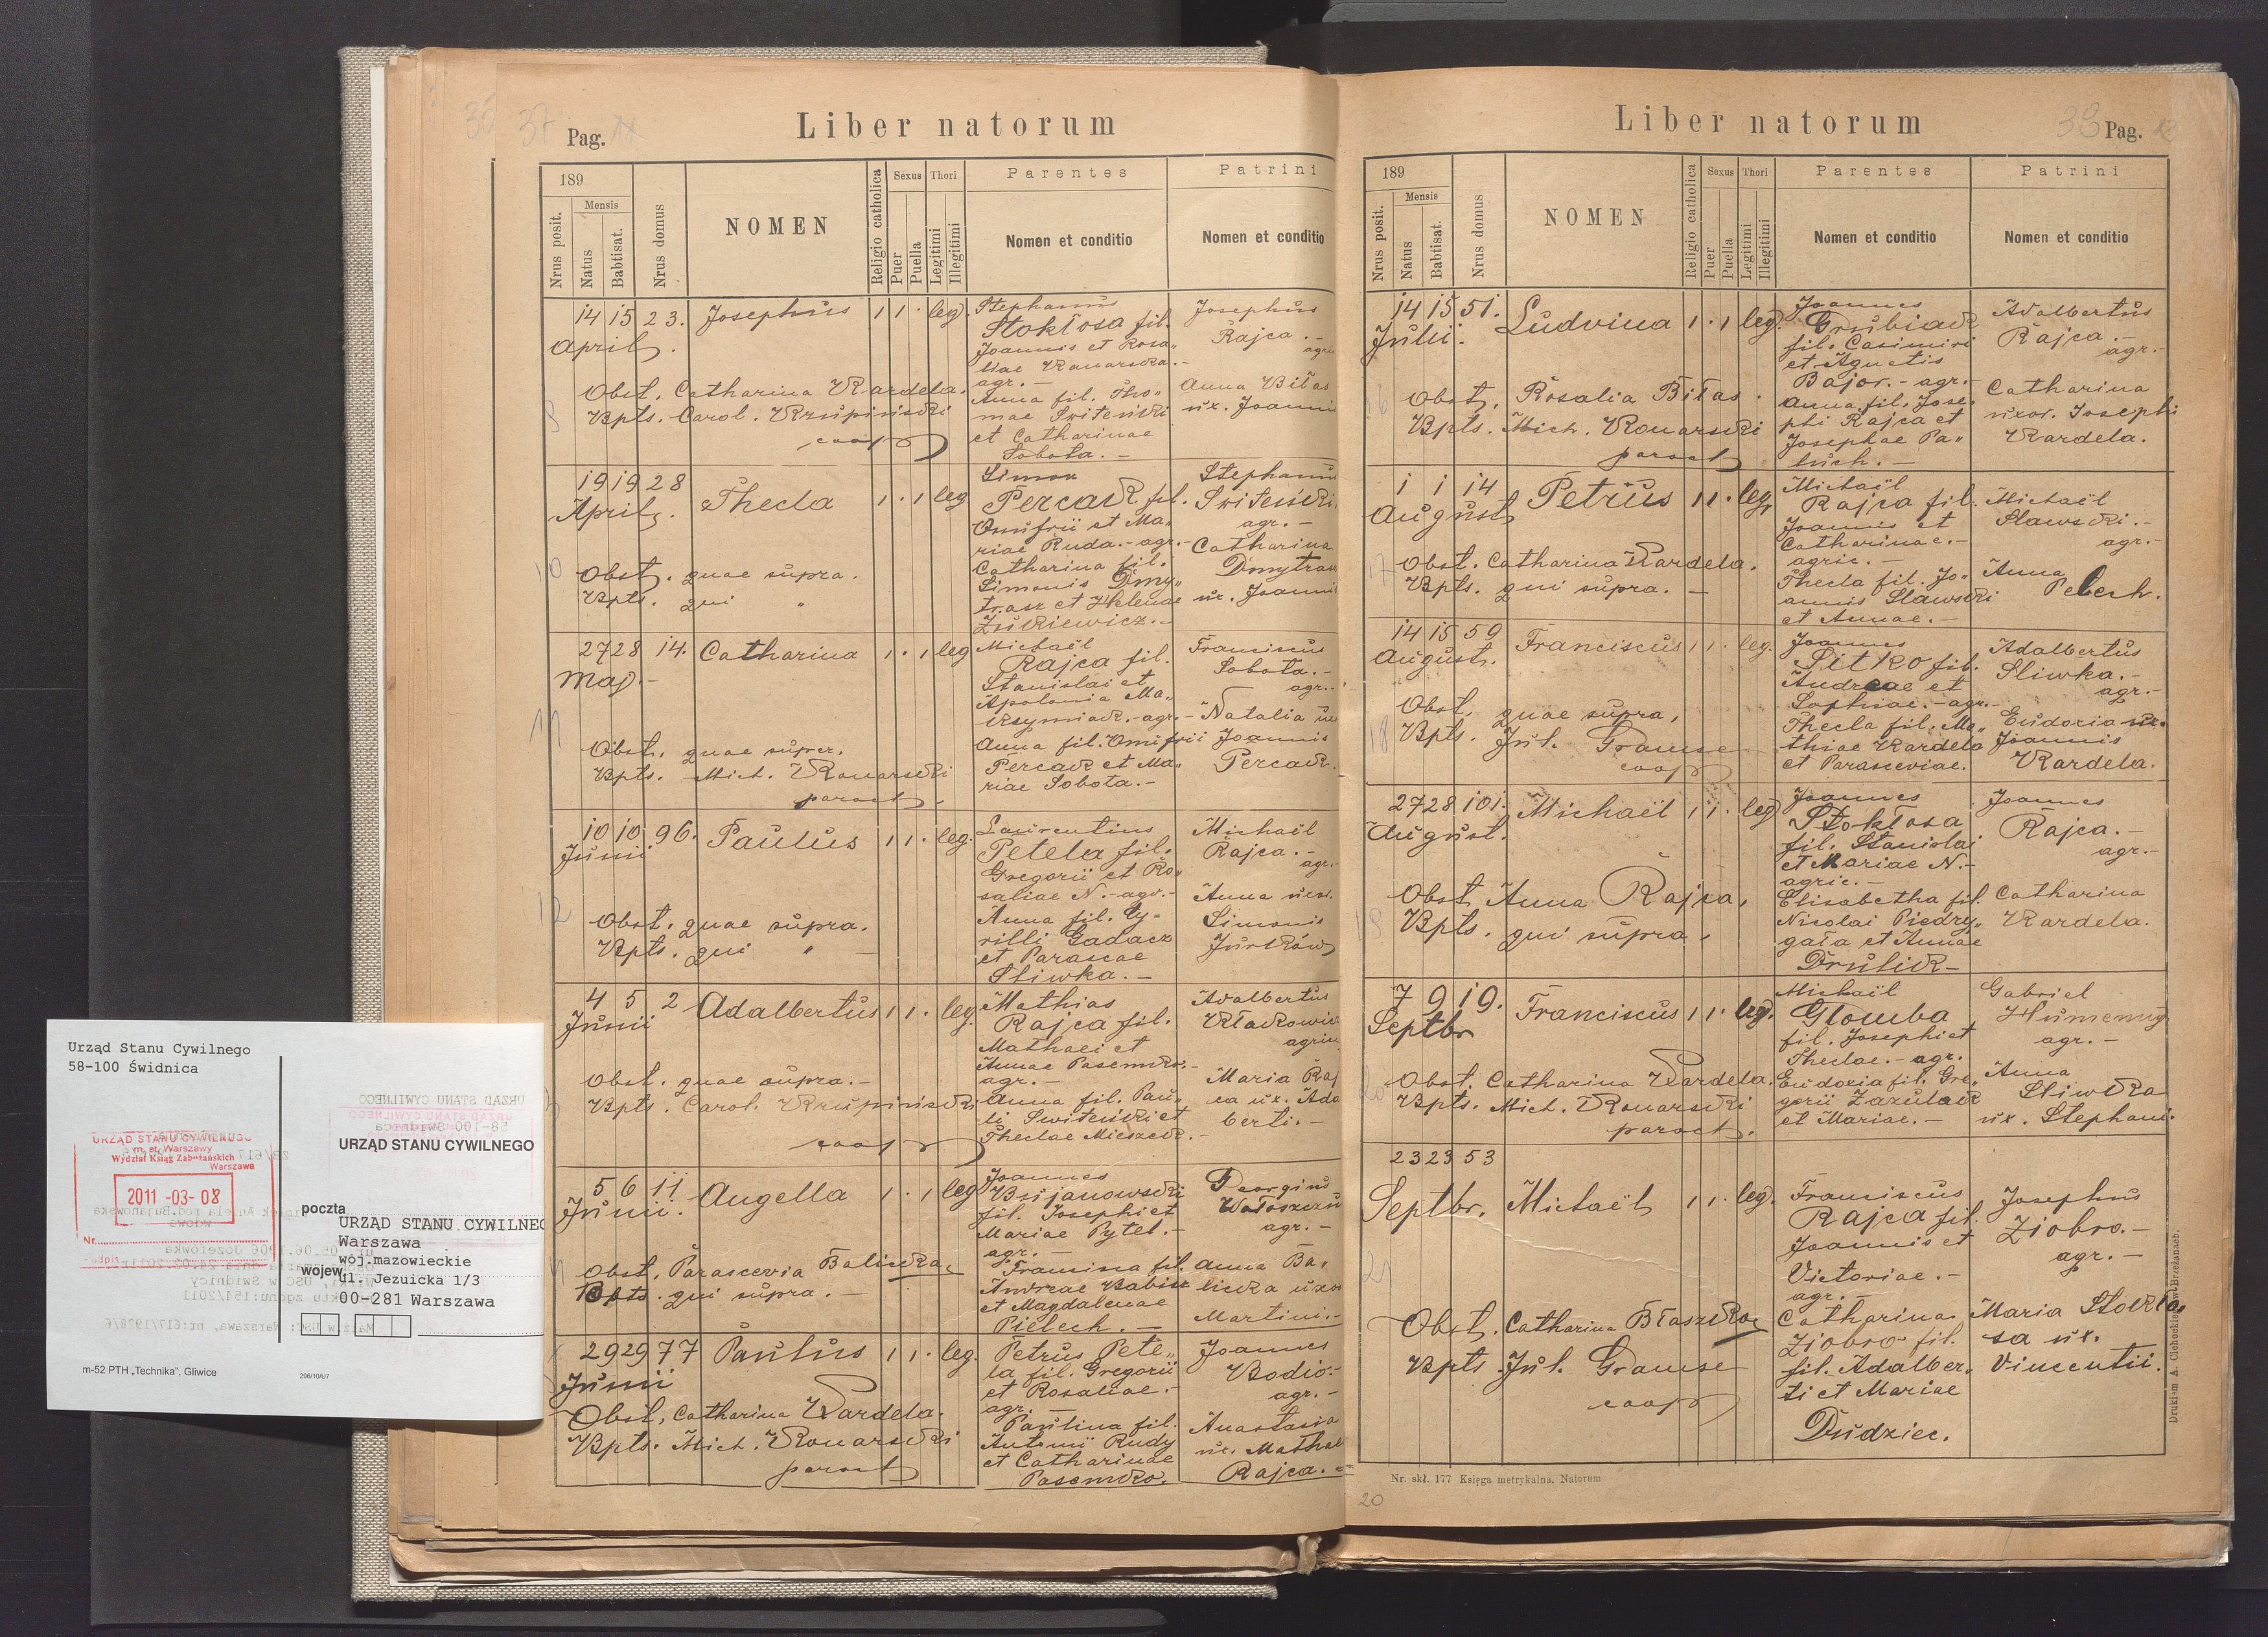 37 Pag.
Liber natorum
189
Nrus posit.
Mensis
Natus
Babtisat.
Nrus domus
NOMEN
Religio catholica
Sexus
Puer
Puella
Thori
Legitimi
Illegitimi
Parentes
Nomen et conditio
Patrini
Nomen et conditio
14 15 23. Josephus 1 1 · leg.
April.
Obst. Catharina Kardela.
Bpts. Carol. Krupiński
coop
Stephanus
Stokłosa fil.
Joannis et Rosa„
liae Konarska.-
agr.-
Anna fil. Tho„
mae Switeński
et Catharinae
Sobota.-
Josephus
Rajca.-
Anna Biłas
ux. Joanni
19 19 28 Thecla 1 · 1 leg
April.
10
Obst. quae supra.
Bpts. qui „
Simon
Percak fil.
Onufrii et Ma„
riae Ruda.- agr.-
Catharina fil.
Simonis Dmy„
trasz et Helenae
Żukiewicz.-
Stephanu
Switeński
agr.-
Catharina
Dmytra
ux. Joanni
27 28 14. Catharina 1 · 1 leg
Maj.-
11
Obst. quae super.
Bpts. Mich. Konarski
paroch
Michaël
Rajca fil.
Stanislai et
Apolonia Ma„
ksymiak.- agr.-
Anna fil. Onufrii
Percak et Ma„
riae Sobota.-
Franciscus
Sobota.-
agr.-
Natalia
Joannis
Percak.
10 10 96. Paulus 1 1 · leg.
Junii
12
Obst. quae supra.
Bpts. qui „ -
Laurentius
Petela fil.
Gregorii et Ro„
saliae N.- agr.-
Anna fil. Cy-
rilli Gadacz
et Parascae
Sliwka.-
Michaël
Rajca.-
agr.-
Anna uxor.
Simonis
Jurków
4 5 2 Adalbertus 1 1 · leg.
Junii
Obst. quae supra.-
Bpts. Carol. Krupiński
coop
Mathias
Rajca fil.
Mathaei et
Annae Pasemko.-
agr.-
Anna fil. Pau„
li Switeński et
Theclae Mieszek.-
Adalbertus
Kłakowic
agric
Maria Raj
ca ux. Ada
berti.-
5 6 11 Angella 1 · 1 leg
Junii.
Obst. Parascevia Balicka
Bpts. qui supra.-
Joannes
Bujanowski
fil. Josephi et
Mariae Pytel.-
agr.-
Francina fil.
Andreae Babiak
et Magdalenae
Pielech.-
Georgius
Wołoszczu
agr.-
Anna Ba„
licka uxor
Martini.-
29 29 77 Paulus 1 1 · leg.
Junii
Obst. Catharina Kardela.
Bpts. Mich. Konarski
paroch
Petrus Pete„
la fil. Gregorii
et Rosaliae.-
agr.-
Paulina fil.
Antonii Rudy
et Catharinae
Pasemko.
Joannes
Bodio.-
agr.-
Anastasia
ux. Mathae
Rajca.-
Liber natorum
Pag.
189
Nrus posit.
Mensis
Natus
Babtisat.
Nrus domus
NOMEN
Religio catholica
Sexus
Puer
Puella
Thori
Legitimi
Illegitimi
Parentes
Nomen et conditio
Patrini
Nomen et conditio
14 15 51. Ludvica 1 · 1 leg.
Julii.
16
Obst. Rosalia Biłas.
Bpts. Mich. Konarski
paroch
Joannes
Grubiak
fil. Casimiri
et Agnetis
Bajor.- agr.-
Anna fil. Jose„
phi Rajca et
Josephae Pa„
luch.-
Adalbertus
Rajca.-
agr.-
Catharina
uxor. Josephi
Kardela.
1 1 14 Petrus 1 1 · leg.
August.
17
Obst. Catharina Kardela.
Bpts. qui supra.-
Michaël
Rajca fil.
Joannis et
Catharinae.-
agric.-
Thecla fil. Jo„
annis Slawski
et Annae.-
Michaël
Slawski.-
agr.-
Anna
Pelech.
14 15 59 Franciscus 1 1 · leg.
August.
18
Obst. quae supra,
Bpts. Jul. Gramse
coop
Joannes
Sitko fil.
Andreae et
Sophiae.- agr.-
Thecla fil. Ma„
thiae Kardela
et Parasceviae.
Adalbertus
Sliwka.-
agr.-
Eudocia ux.
Joannis
Kardela.
27 28 101. Michaël 1 1 · leg
August.
Obst. Anna Rajca,
Bpts. qui supra,
Joannes
Stokłosa
fil. Stanislai
et Mariae N.-
agric.-
Elisabetha fil.
Nicolai Piedzy„
gała et Annae
Drulik-
Joannes
Rajca.-
agr.-
Catharina
Kardela.
7 9 19. Franciscus 1 1 · leg.
Septbr
20
Obst. Catharina Kardela.
Bpts. Mich. Konarski
paroch.
Michaël
Glomba
fil. Josephi et
Theclae.- agr.
Eudoxia fil. Gre„
gorii Zazulak
et Mariae.-
Gabriel
Humenny
agr.-
Anna
Sliwka
ux. Stephani.
23 23 53
Septbr. Michaël 1 1 · leg.
21
Obst. Catharina Błaszko
Bpts. Jul. Gramse
coop
Franciscus
Rajca fil.
Joannis et
Victoriae.-
agr.-
Catharina
Ziobro fil.
fil. Adalber„
ti et Mariae
Dudziec.
Josephus
Ziobro.-
agr.-
Maria Stokło
sa ux.
Vincentii.
Nr. skł. 177 Księga metrykalna. Natorum
20
Urząd Stanu Cywilnego
58-100 Świdnica
URZĄD STANU CYWILNEGO
m. st. Warszawy
Wydział Ksiąg Zabużańskich
Warszawa
2011 -03- 08
Nr.
URZĄD STANU CYWILNEGO
poczta
URZĄD STANU CYWILNEG
Warszawa
woj.mazowieckie
wojew.
ul. Jezuicka 1/3
00-281 Warszawa
m-52 PTH „Technika", Gliwice
296/10/U7